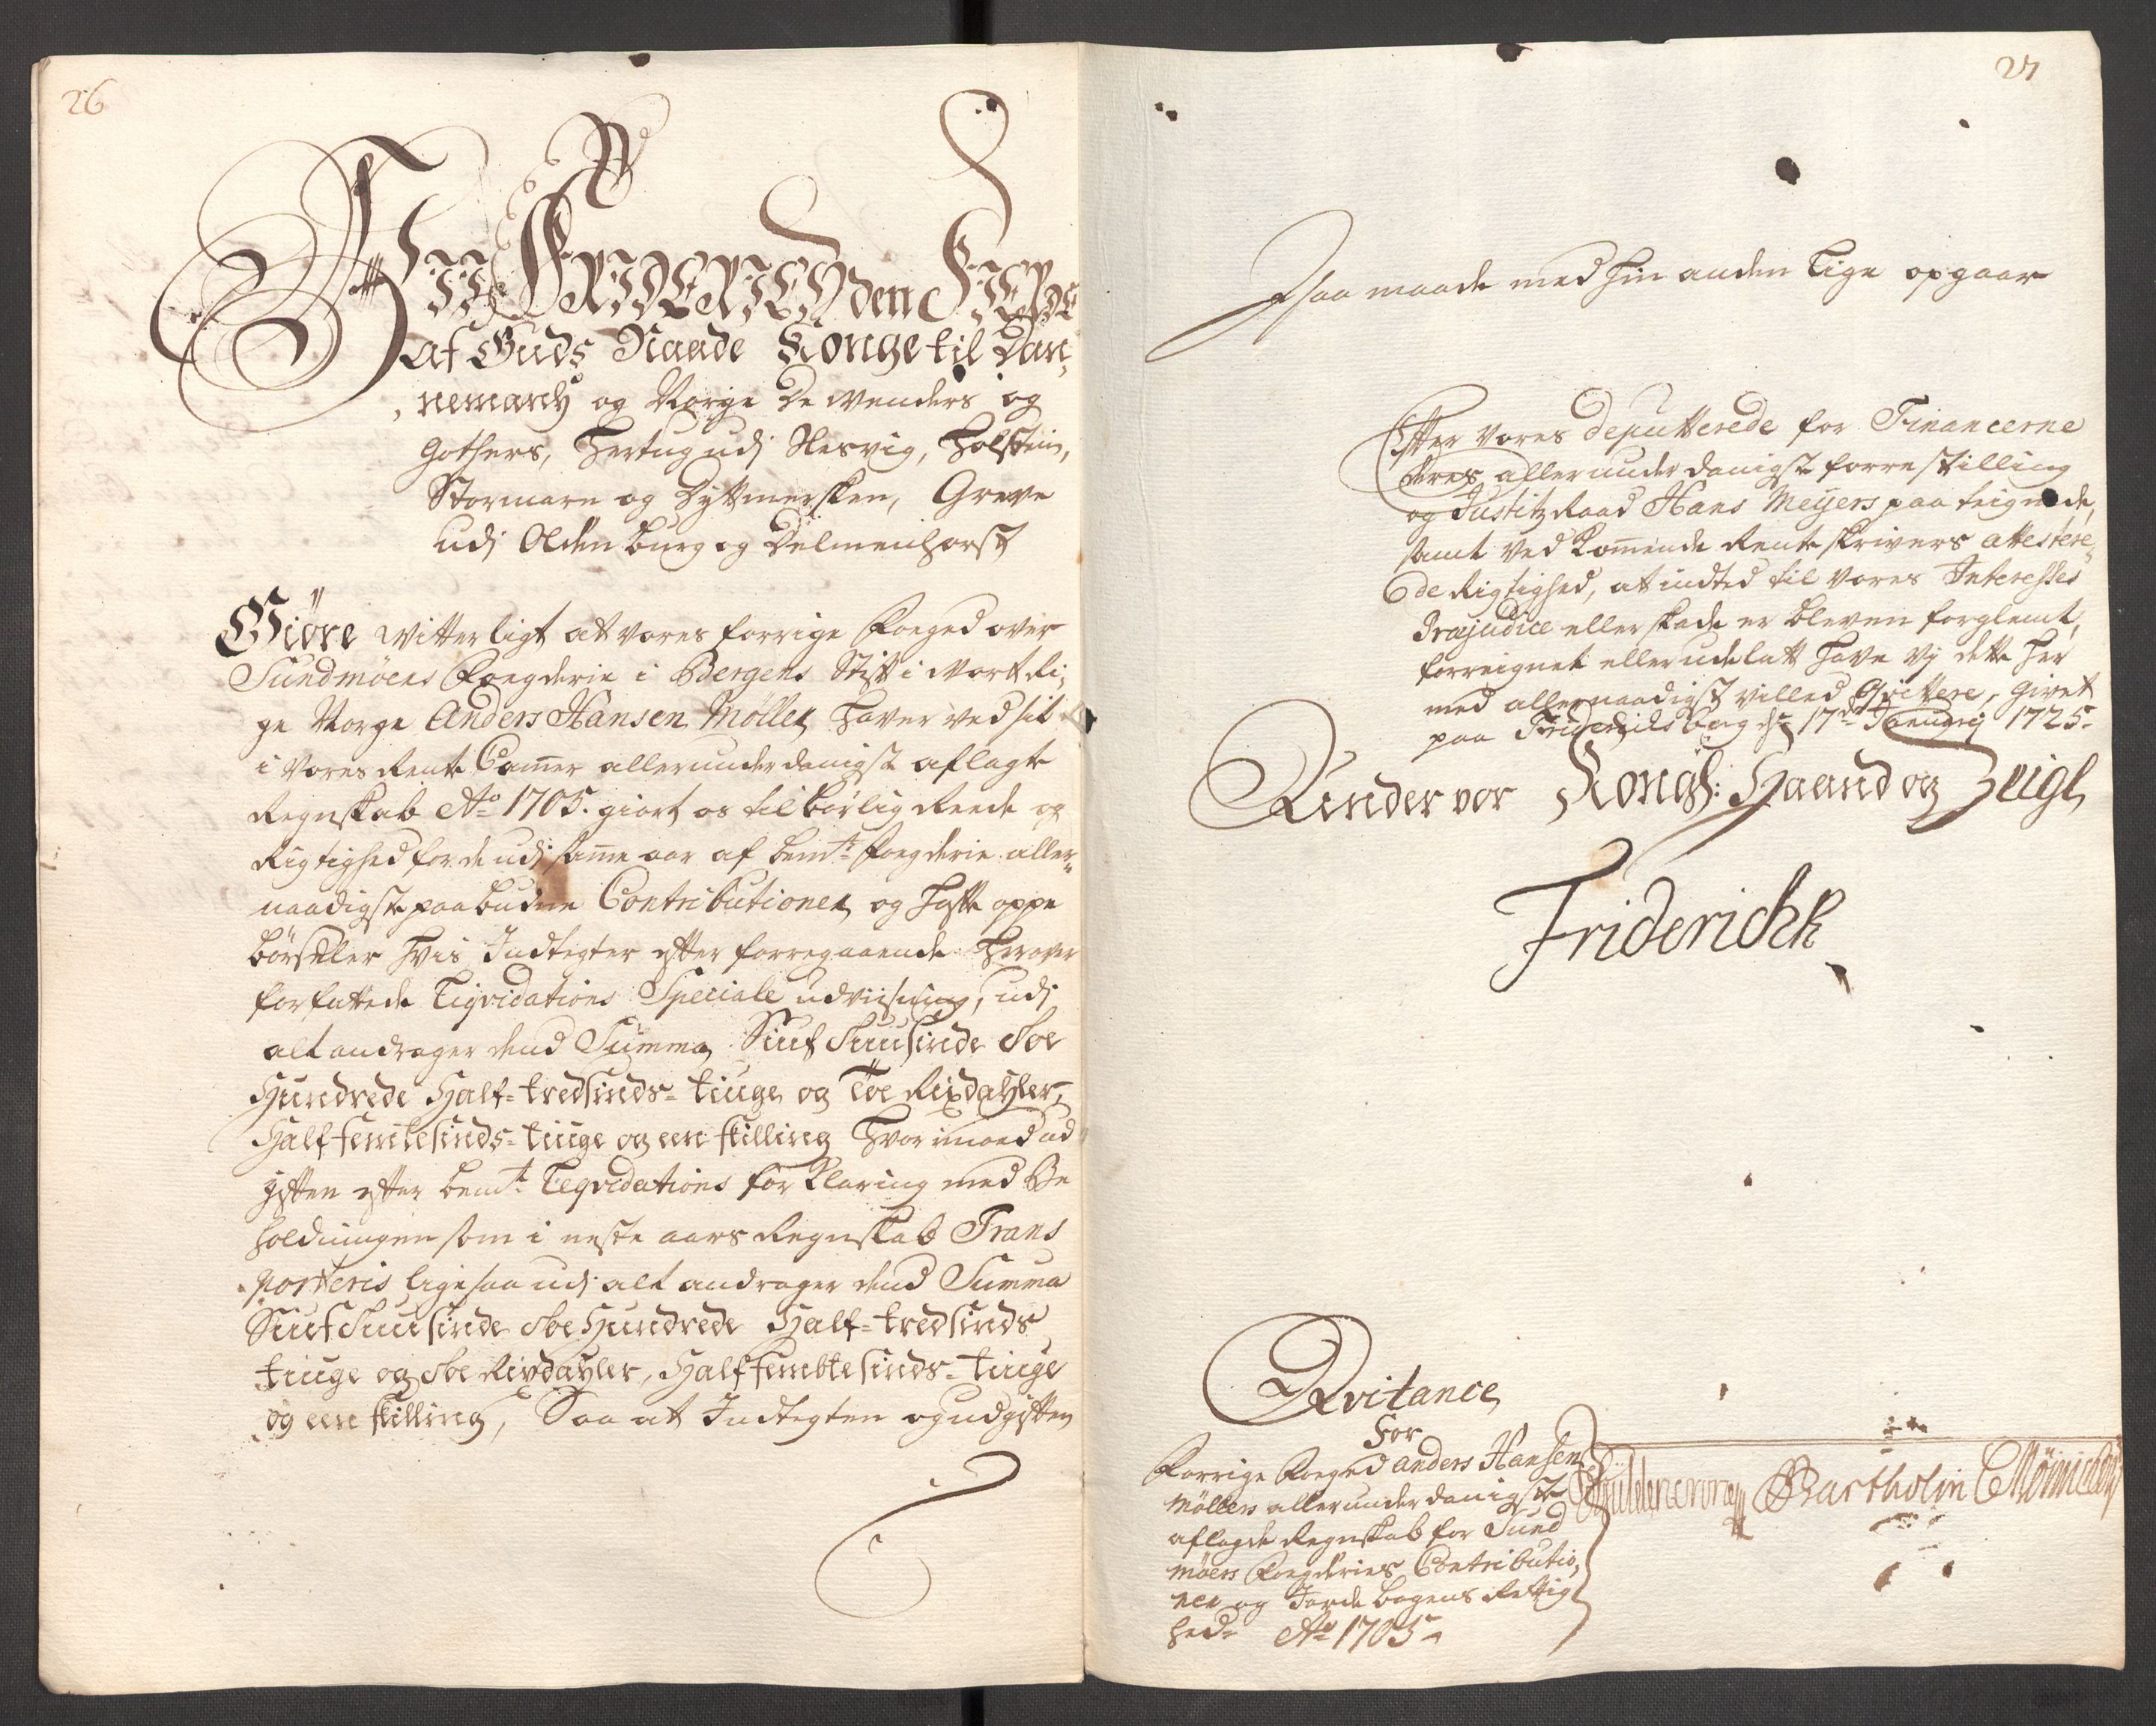 26
Wii FRIDERICH den FIERDE
af Guds Naade Konge til Dan,
,nemarck og Norge De Wenders og
Gothers, Hertug udj Slesvig, Holsten,
Stormarn og Dytmersken, Greve
udj Oldenburg og Delmenhorst
Giöre witterligt at vores forrige Foeged over
Sundmöers Foegderie i Bergens Stift i Vort Ri,
ge Norge Anders Hansen Möller haver ved sit
i Vores Rente Cammer allerunderdanigst aflagte
Regnskab Ao 1705. giort os tilbörlig Reede og
Rigtighed for de udj samme aar af bemte Foegderie aller,,
naadigste paabudne Contributioner og hafte oppe
börseler hvis Indtegter efter forregaaende herover
forfattede Liqvidations Speciale udviisning, udj
alt andrager dend Summa Siuf Tuusinde Toe
Hundrede Half-tredsinds-tiuge og Toe Rixdahler,
Half femtesinds-tiuge og een skilling hvorimoed ud
giften efter bemt Liqvidations forklaring med Be
holdningen som i neste aars Regnskab Trans
porteris ligesaa udj alt andrager dend Summa
Siuf Tuusinde Toe Hundrede Half-tredsinds
tiuge og Toe Rixdahler, Half femtesinds-tiuge
og een skilling, Saa at Indtegten og udgiften
27
paa maade med hin anden lige opgaar
Efter Vores deputterede for Financerne
deres allerunderdanigst forrestilling
og Justitz Raad Hans Meyers paateignede,
samt Vedkommende Rente skrivers attestere,
de Rigtighed, at indted til Vores Interesses
Præjudice eller skade er bleven forglemt,
forreignet eller udelatt have Vj dette her
med allernaadigst villed Qvittere, Givet
paa Friderichsberg dn 17de January 1725.
Under vor Kongl: Haand og Zeigl
Friderickh
Qvitance
For
Forrige Foeged Anders Hansen
Möllers allerunderdanigste
aflagde Regnskab for Sund
möers Foegderies Contributio,
ner og Jordebogens Rettig
hed. Ao 1705
Güldencrone Bartholin CMöinichen